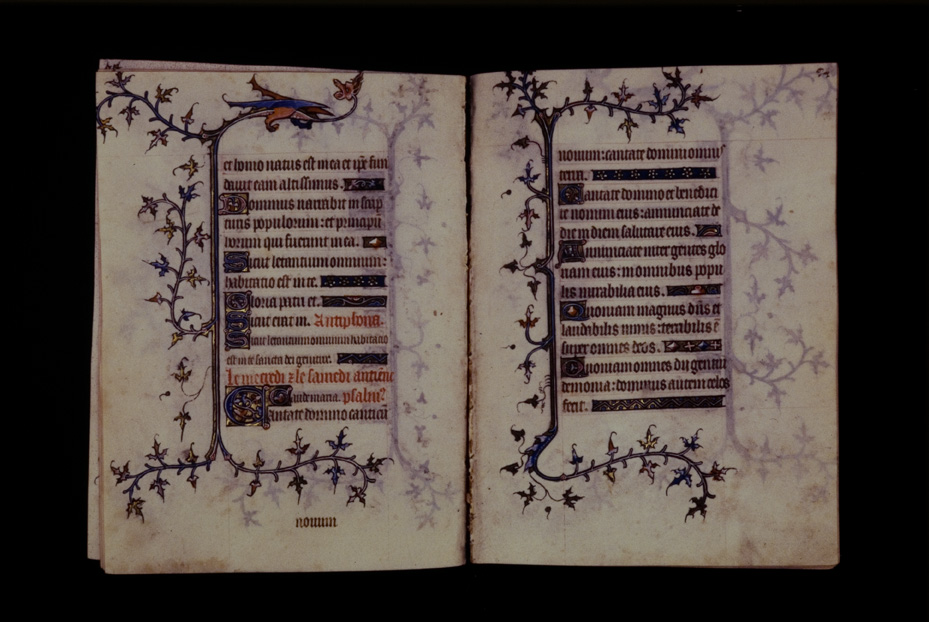 et homo natus est in ea et ipse fun
dauit eam altissimus.
Dominus narrabit in scrip
turis populorum: et principu
horum qui fuerunt in ea.
Sicut letantium omnium:
habitatio est in te.
Gloria patri et.
Sicut erat in. Antiphona.
Sicut letantium omnium habitatio
est in te sancta dei genitrix.
Le mercredi z le samedi antiene
Quidemana. psalm9
Cantate domino canticu
nouum
nouum: cantate domino omnis
terra.
Cantate domino et benedici
te nomini eius: annunciate de
die in diem salutare eius.
Annunciate inter gentes glo
riam eius: in omnibus popu
lis mirabilia eius.
Quoniam magnus dns et
laudabilis nimis: terribilis e
super omnes deos.
Quoniam omnes dii gentiu
demonia: dominus autem celos
fecit.